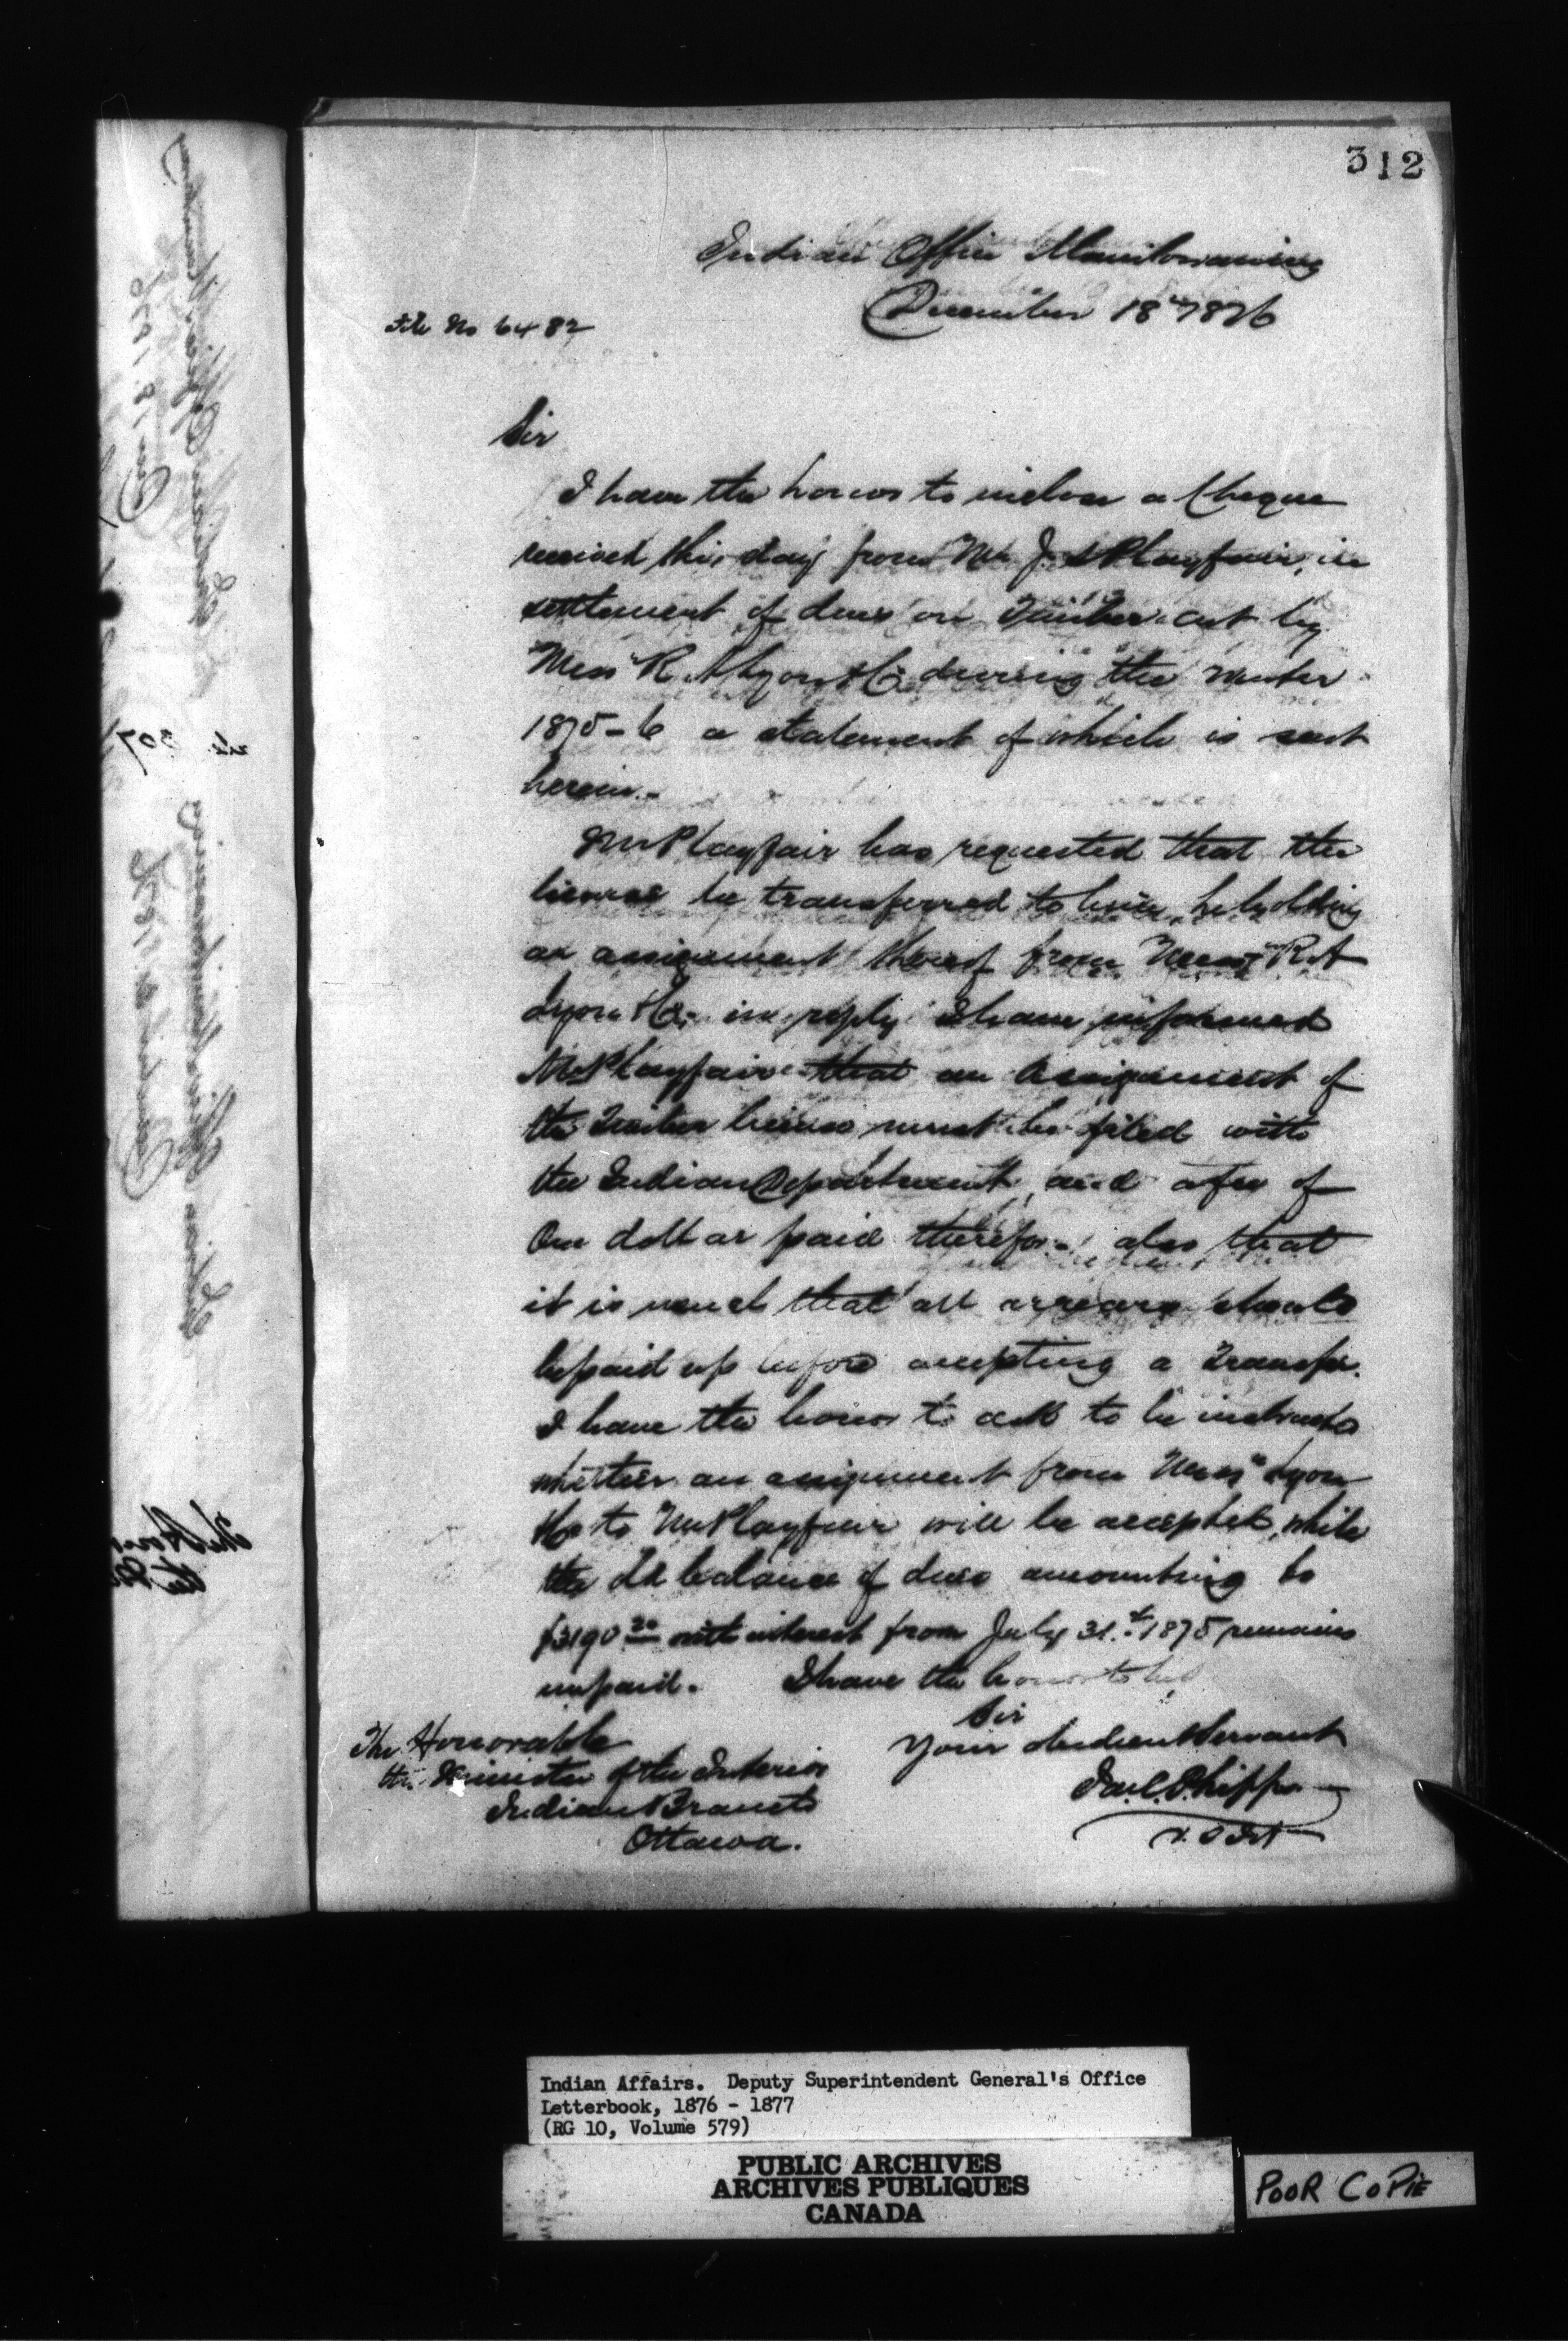 312
Indian Office Manitowaning
December 18th 1876
File No 6482
Sir
I have the honor to inclose a Cheque
received this day from Mr J. S Playfair, in
settlement of dues on Timber cut by
Messrs R. A Lyon & Co. during the winter
1875-6 a statement of which is sent
herein.-
Mr Playfair has requested that the
license be transferred to him, he holding
an assignment thereof from Messrs R. A
Lyon & Co. in reply I have informed
Mr Playfair that an assignment of
the Timber license must be filed with
the Indian Department, and a fee of
One dollar paid therefor - also that
it is usual that all arrears should
be paid up before accepting a Transfer.
I have the honor to ask to be instructed
whether an assignment from Messrs Lyon
& Co to Mr Playfair will be accepted, while
the balance of dues amounting to
$3190 20 with interest from July 31st 1875 remains
unpaid. I have the honor to be
Sir
Your obedient Servant
Jas. C. Phipps
The Honorable
the Minister of the Interior
Indian Branch
Ottawa.
Indian Affairs. Deputy Superintendent General's Office
Letterbook, 1876 - 1877
(RG 10, Volume 579)
PUBLIC ARCHIVES
ARCHIVES PUBLIQUES
CANADA
POOR COPIE